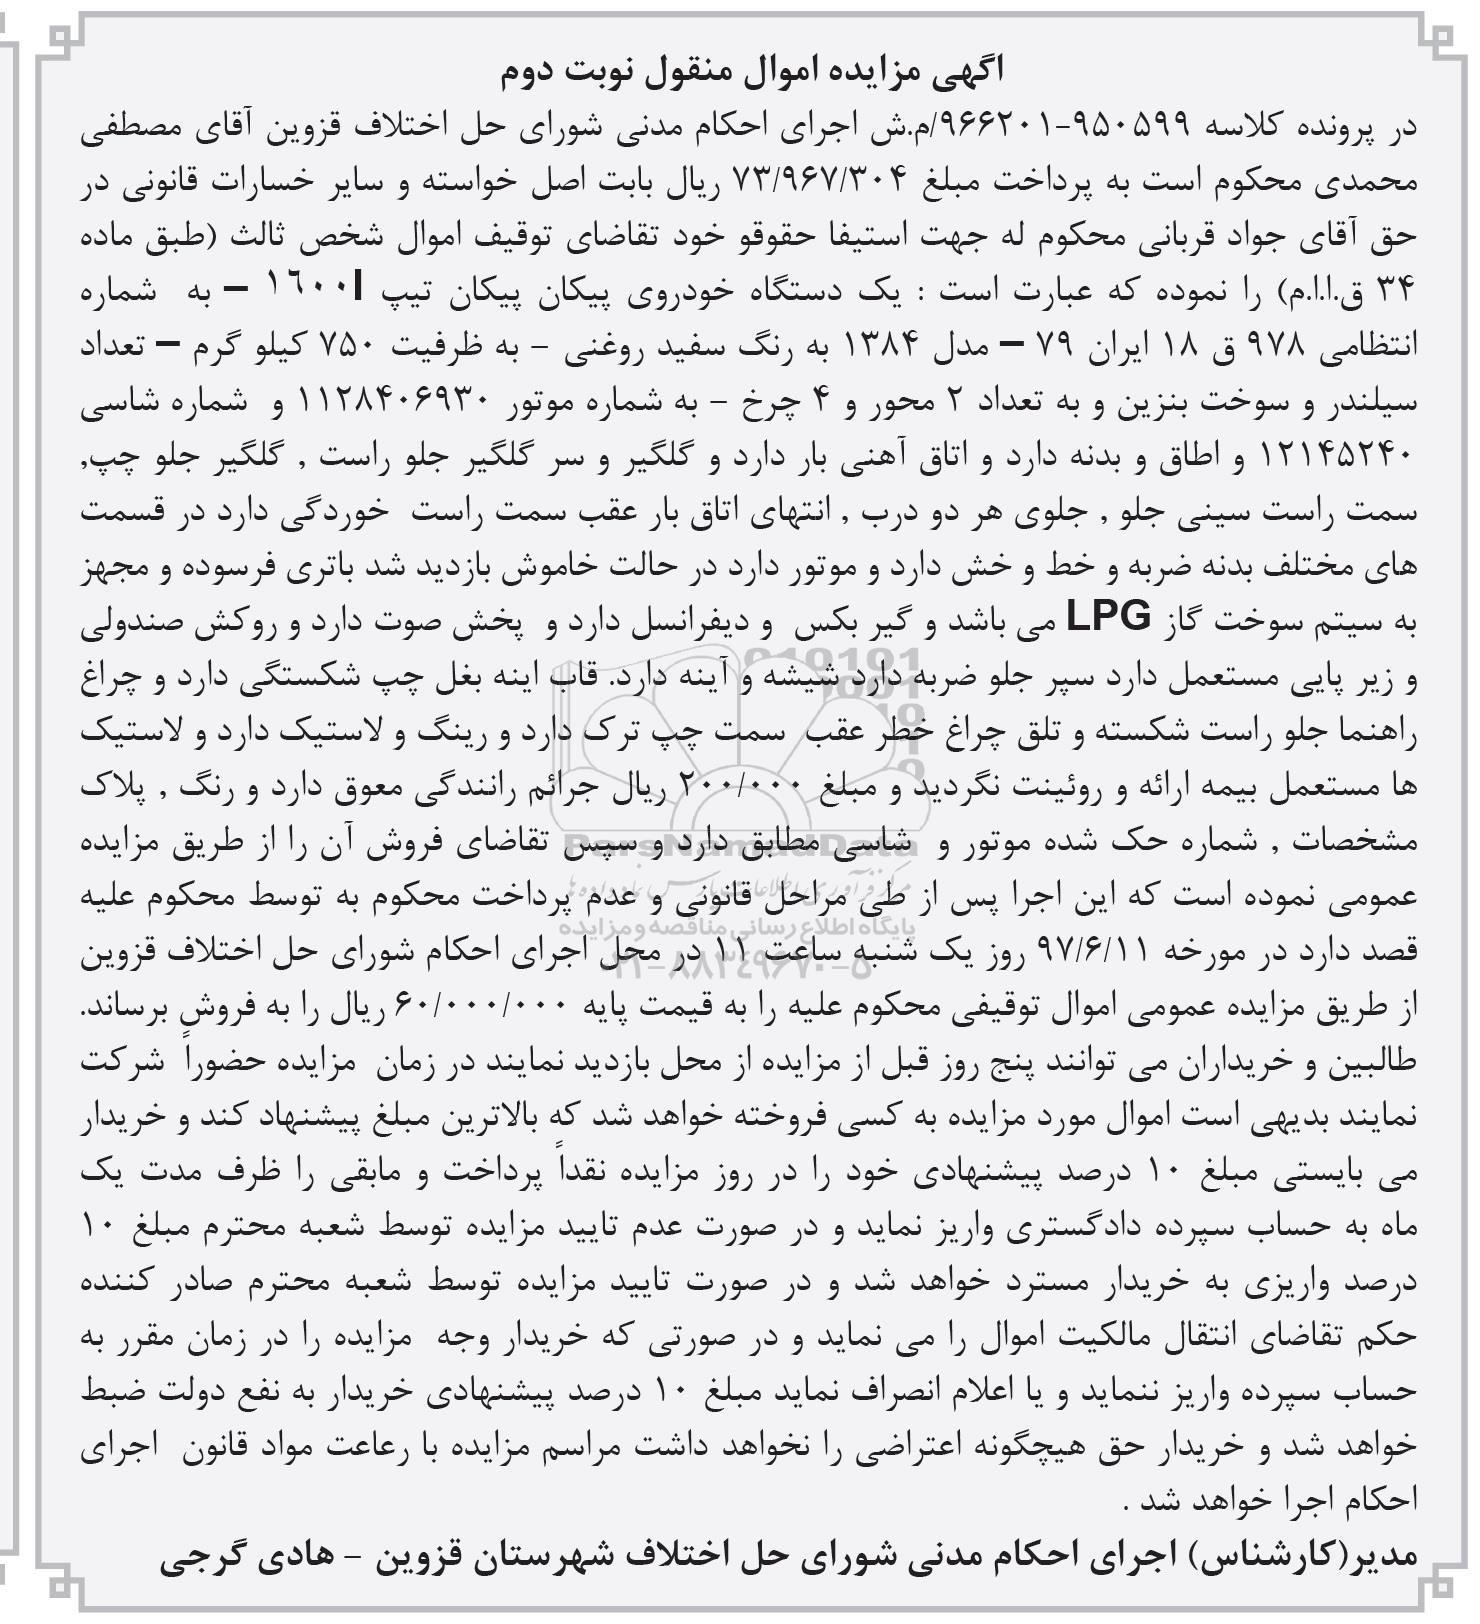 اگهی مزایده اموال منقول نوبت دوم
در پرونده کلاسه ۹۵۰۵۹۹-۹۶۶۲۰۱/م.ش اجرای احکام مدنی شورای حل اختلاف قزوین آقای مصطفی
محمدی محکوم است به پرداخت مبلغ ۷۳/۹۶۷/۳۰۴ ریال بابت اصل خواسته و سایر خسارات قانونی در
حق آقای جواد قربانی محکوم له جهت استیفا حقوقو خود تقاضای توقیف اموال شخص ثالث (طبق ماده
۳۴ ق.ا.ا.م) را نموده که عبارت است : یک دستگاه خودروی پیکان پیکان تیپ ۱۶۰۰I – به شماره
انتظامی ۹۷۸ ق ۱۸ ایران ۷۹ – مدل ۱۳۸۴ به رنگ سفید روغنی – به ظرفیت ۷۵۰ کیلو گرم – تعداد
سیلندر و سوخت بنزین و به تعداد ۲ محور و ۴ چرخ – به شماره موتور ۱۱۲۸۴۰۶۹۳۰ و شماره شاسی
۱۲۱۴۵۲۴۰ و اطاق و بدنه دارد و اتاق آهنی بار دارد و گلگیر و سر گلگیر جلو راست , گلگیر جلو چپ,
سمت راست سینی جلو , جلوی هر دو درب , انتهای اتاق بار عقب سمت راست خوردگی دارد در قسمت
های مختلف بدنه ضربه و خط و خش دارد و موتور دارد در حالت خاموش بازدید شد باتری فرسوده و مجهز
به سیتم سوخت گاز LPG می باشد و گیر بکس و دیفرانسل دارد و پخش صوت دارد و روکش صندولی
و زیر پایی مستعمل دارد سپر جلو ضربه دارد شیشه و آینه دارد. قاب اینه بغل چپ شکستگی دارد و چراغ
راهنما جلو راست شکسته و تلق چراغ خطر عقب سمت چپ ترک دارد و رینگ و لاستیک دارد و لاستیک
ها مستعمل بیمه ارائه و روئینت نگردید و مبلغ ۲۰۰/۰۰۰ ریال جرائم رانندگی معوق دارد و رنگ , پلاک
مشخصات , شماره حک شده موتور و شاسی مطابق دارد و سپس تقاضای فروش آن را از طریق مزایده
عمومی نموده است که این اجرا پس از طی مراحل قانونی و عدم پرداخت محکوم به توسط محکوم علیه
قصد دارد در مورخه ۹۷/۶/۱۱ روز یک شنبه ساعت ۱۱ در محل اجرای احکام شورای حل اختلاف قزوین
از طریق مزایده عمومی اموال توقیفی محکوم علیه را به قیمت پایه ۶۰/۰۰۰/۰۰۰ ریال را به فروش برساند.
طالبین و خریداران می توانند پنج روز قبل از مزایده از محل بازدید نمایند در زمان مزایده حضوراً شرکت
نمایند بدیهی است اموال مورد مزایده به کسی فروخته خواهد شد که بالاترین مبلغ پیشنهاد کند و خریدار
می بایستی مبلغ ۱۰ درصد پیشنهادی خود را در روز مزایده نقداً پرداخت و مابقی را ظرف مدت یک
ماه به حساب سپرده دادگستری واریز نماید و در صورت عدم تایید مزایده توسط شعبه محترم مبلغ ۱۰
درصد واریزی به خریدار مسترد خواهد شد و در صورت تایید مزایده توسط شعبه محترم صادر کننده
حکم تقاضای انتقال مالکیت اموال را می نماید و در صورتی که خریدار وجه مزایده را در زمان مقرر به
حساب سپرده واریز ننماید و یا اعلام انصراف نماید مبلغ ۱۰ درصد پیشنهادی خریدار به نفع دولت ضبط
خواهد شد و خریدار حق هیچگونه اعتراضی را نخواهد داشت مراسم مزایده با رعاعت مواد قانون اجرای
احکام اجرا خواهد شد .
مدیر(کارشناس) اجرای احکام مدنی شورای حل اختلاف شهرستان قزوین – هادی گرجی
ParsNamadData
پایگاه اطلاع رسانی مناقصه و مزایده
۰۲۱-۸۸۳۴۹۶۷۰-۵